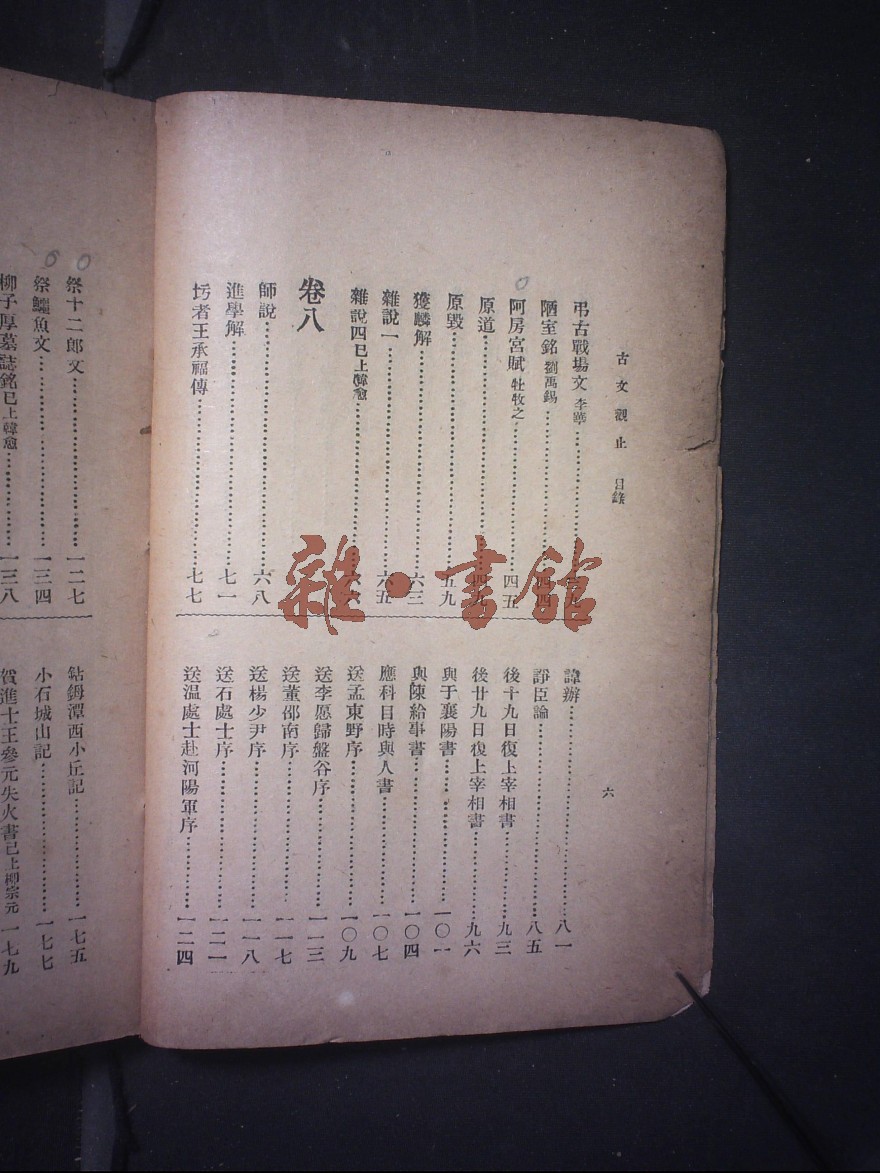 古文觀止 目錄
六
弔古戰場文 李華
陋室銘 劉禹錫 四四
阿房宮賦 杜牧之 四五
原道 四九
原毀 五九
獲麟解 六三
雜說一 六五
雜說四 已上韓愈 六六
卷八
師說 六八
進學解 七一
圬者王承福傳 七七
諱辯 八一
諍臣論 八五
後十九日復上宰相書 九三
後廿九日復上宰相書 九六
與于襄陽書 一〇一
與陳給事書 一〇四
應科目時與人書 一〇七
送孟東野序 一〇九
送李愿歸盤谷序 一一三
送董邵南序 一一七
送楊少尹序 一一八
送石處士序 一二一
送温處士赴河陽軍序 一二四
祭十二郎文 一二七
祭鱷魚文 一三四
柳子厚墓誌銘 已上韓愈 一三八
鈷鉧潭西小丘記 一七五
小石城山記 一七七
賀進士王參元失火書 已上柳宗元 一七九
雜·書館